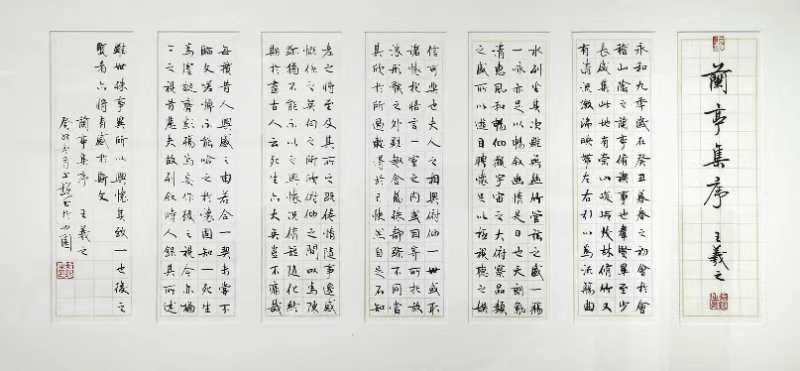 蘭亭集序 王羲之
永和九年歲在癸丑暮春之初會於會
稽山陰之蘭亭修禊事也群賢畢至少
長咸集此地有崇山峻嶺茂林修竹又
有清流激湍映帶左右引以為流觴曲
水列坐其次雖無絲竹管弦之盛一觴
一詠亦足以暢敘幽情是日也天朗氣
清惠風和暢仰觀宇宙之大俯察品類
之盛所以遊目騁懷足以極視聽之娛
信可樂也夫人之相與俯仰一世或取
諸懷抱悟言一室之內或因寄所托放
浪形骸之外雖趣舍萬殊靜躁不同當
其欣於所遇暫得於己快然自足不知
老之將至及其所之既倦情隨事遷感
慨係之矣向之所欣俯仰之間以為陳
跡猶不能不以之興懷況修短隨化終
期於盡古人云死生亦大矣豈不痛哉
每攬昔人興感之由若合一契未嘗不
臨文嗟悼不能喻之於懷固知一死生
為虛誕齊彭殤為妄作後之視今亦猶
今之視昔悲夫故列敘時人錄其所述
雖世殊事異所以興懷其致一也後之
覽者亦將有感於斯文
蘭亭集序 王羲之
癸卯冬月